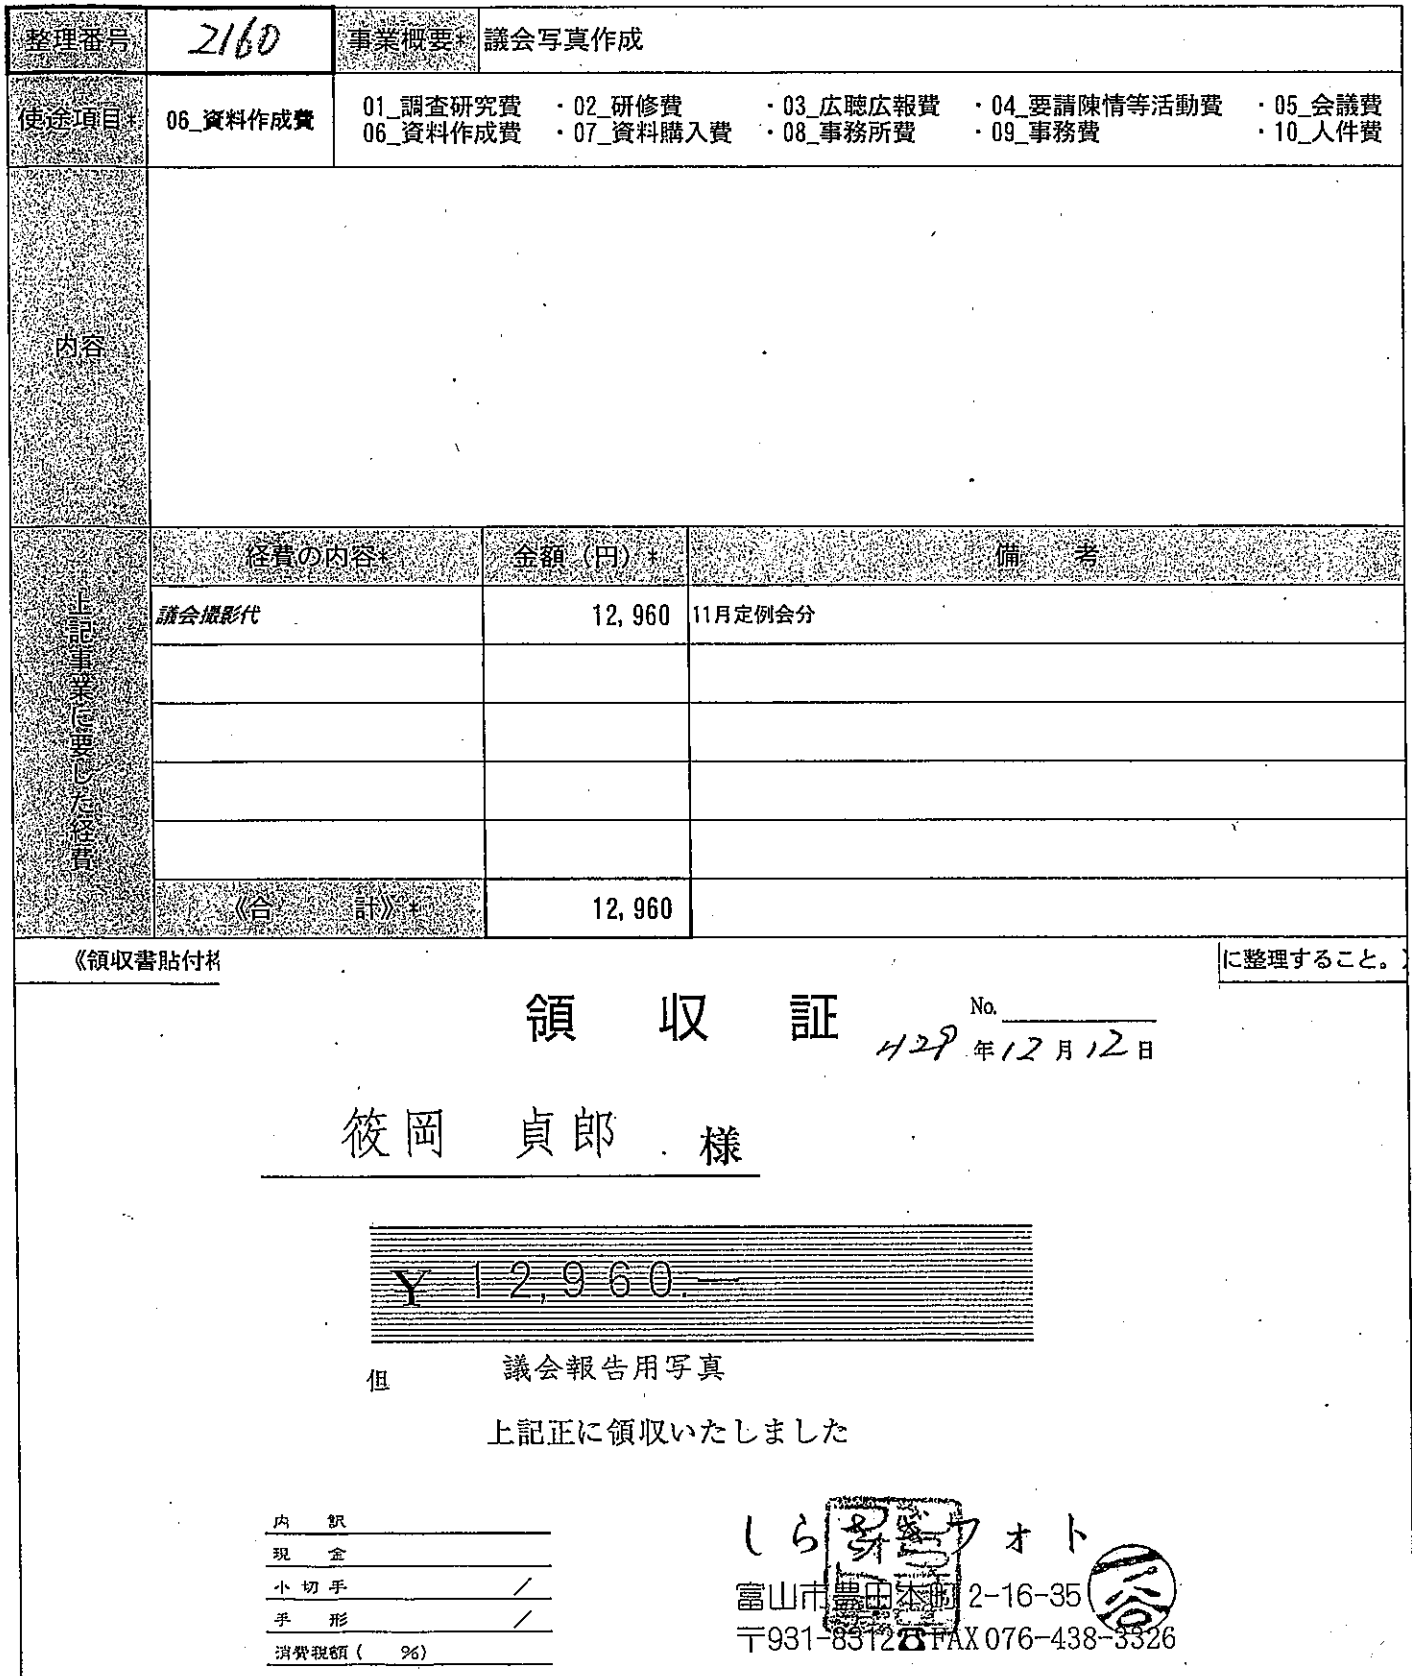 整理番号 2160 事業概要* 議会写真作成
使途項目* 06_資料作成費
01_調査研究費 ・02_研修費 ・03_広聴広報費 ・04_要請陳情等活動費 ・05_会議費
06_資料作成費 ・07_資料購入費 ・08_事務所費 ・09_事務費 ・10_人件費
内容
上記事業に要した経費
経費の内容* 金額（円）* 備 考
議会撮影代 12,960 11月定例会分
《合 計》* 12,960
《領収書貼付 に整理すること。》
領 収 証
No.
H29年12月12日
筱岡 貞郎 様
¥12,960.—
但 議会報告用写真
上記正に領収いたしました
内 訳
現 金
小切手 /
手 形 /
消費税額( %)
しら フォト
富山市豊田本町2-16-35
〒931-8312☎FAX076-438-3326